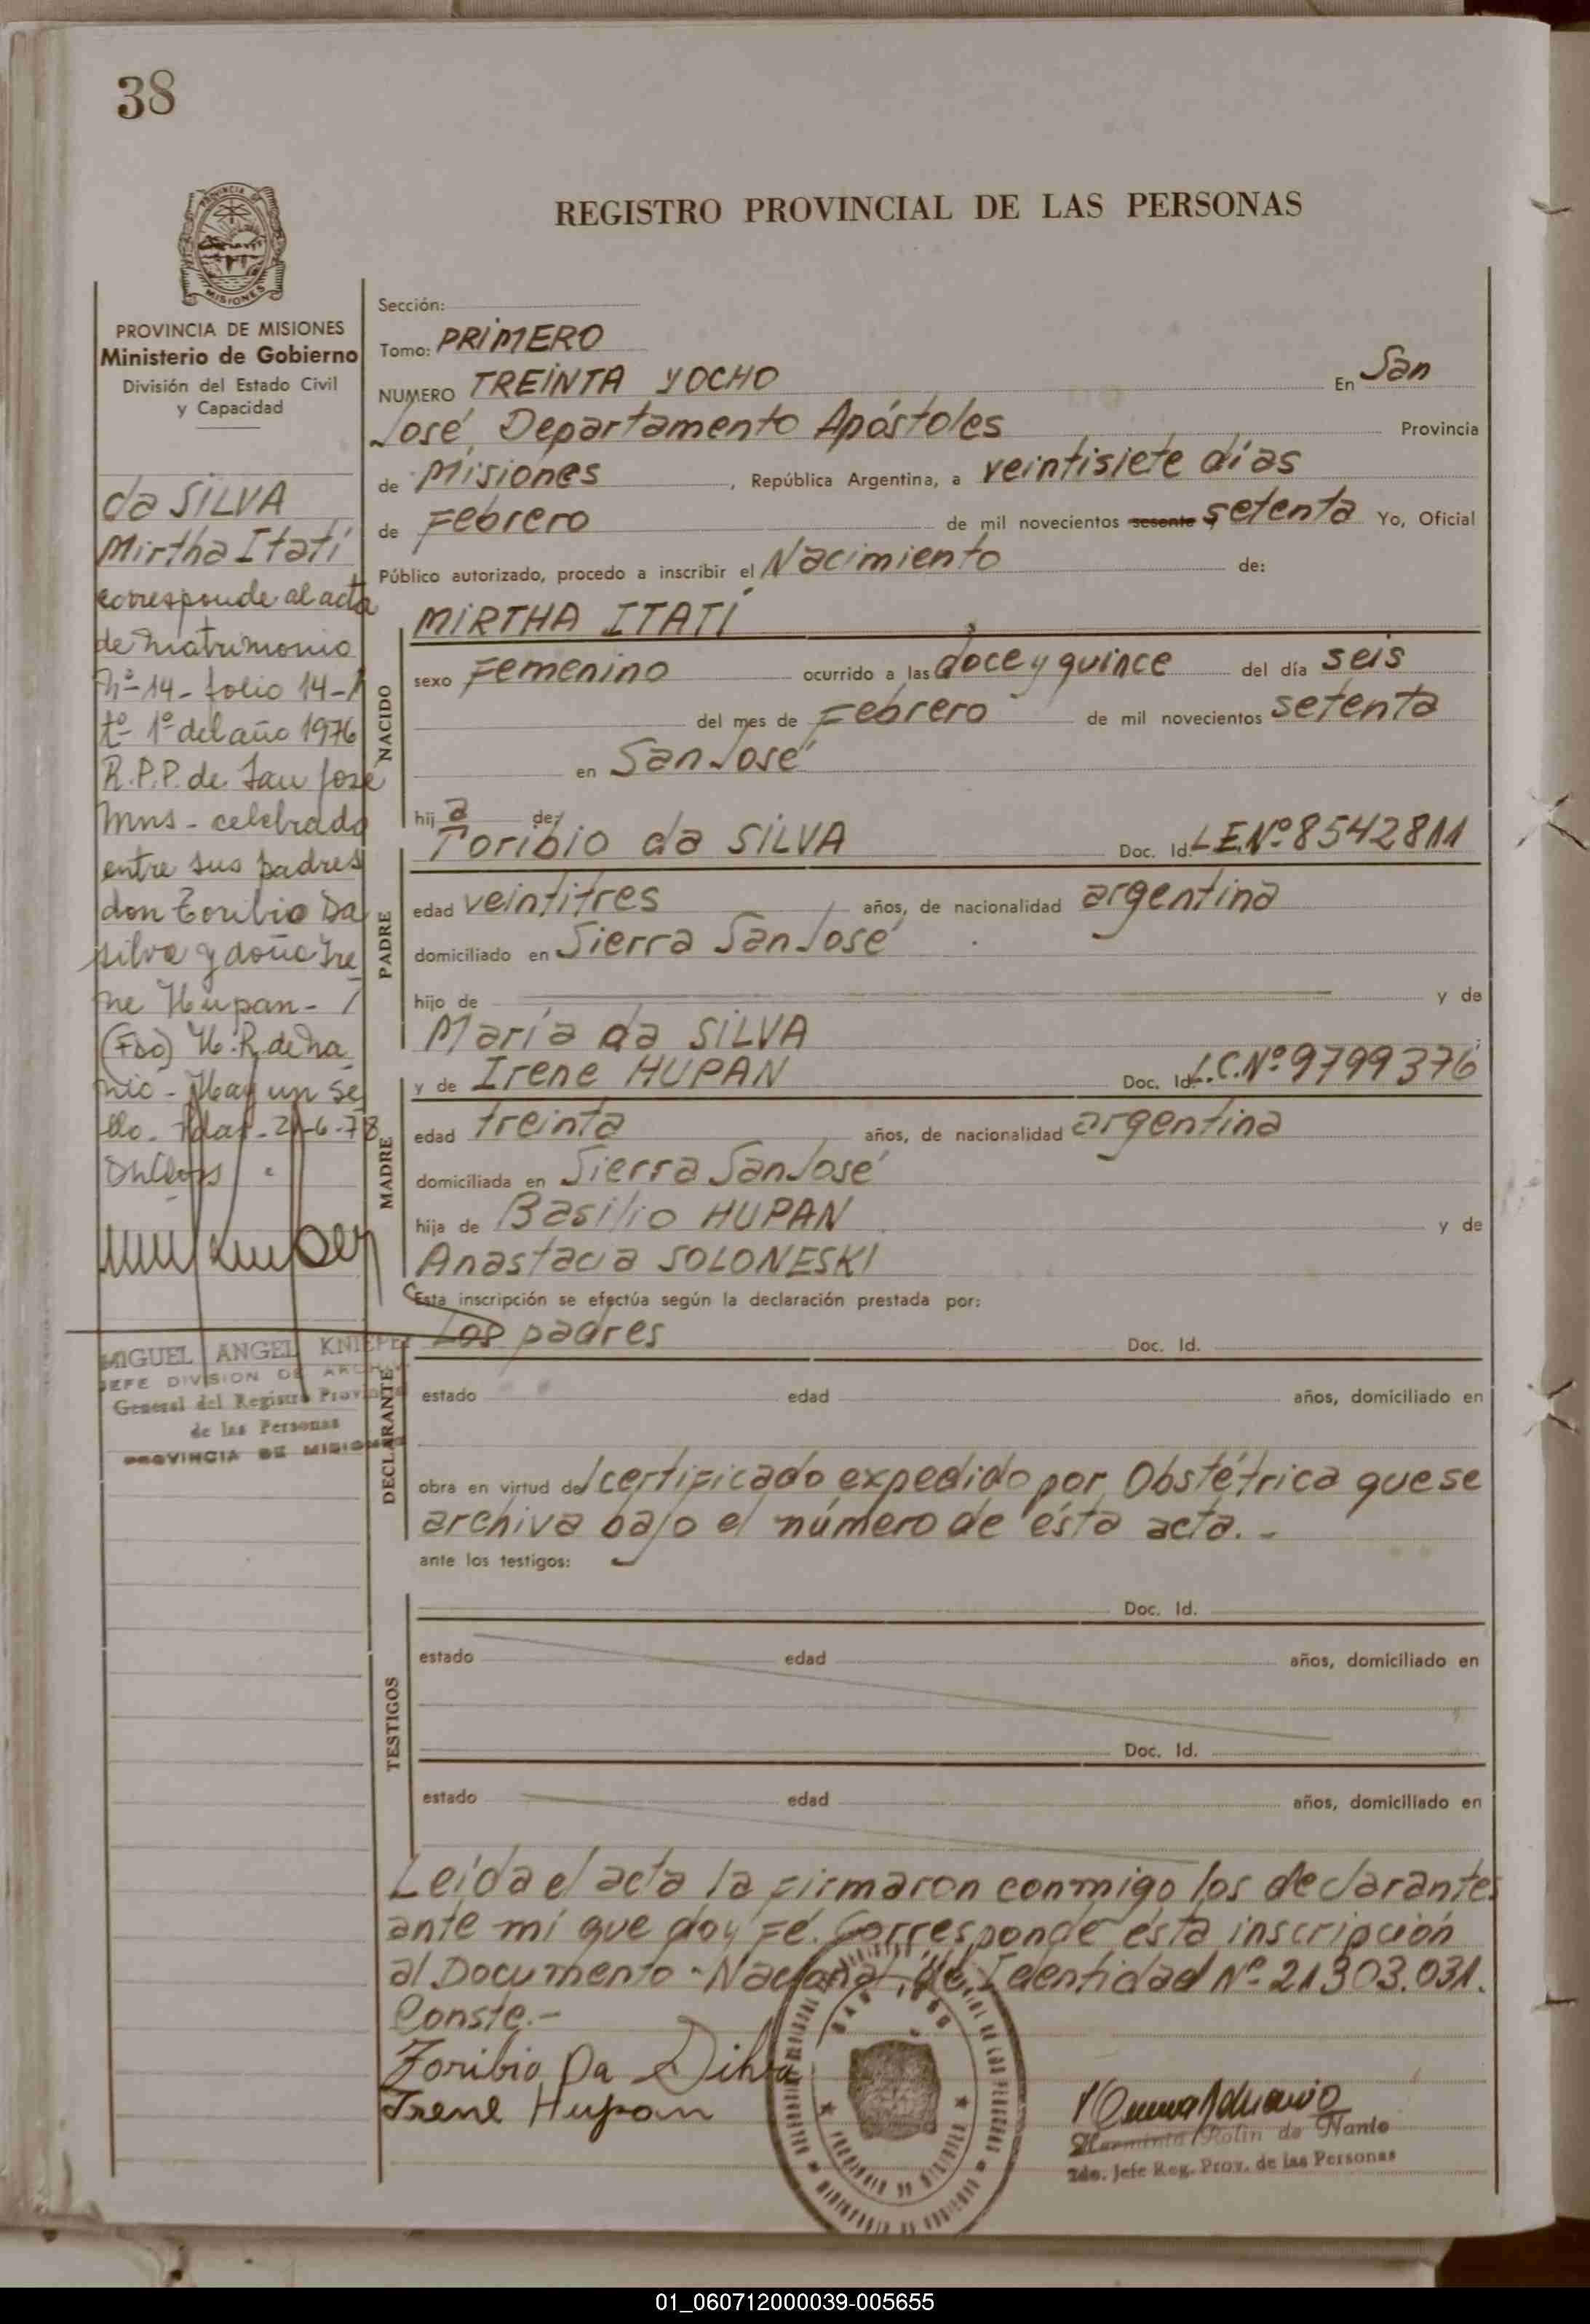 38
REGISTRO PROVINCIAL DE LAS PERSONAS
PROVINCIA DE MISIONES
Ministerio de Gobierno
División del Estado Civil
y Capacidad
da SILVA
Mirtha Itatí
corresponde al acta
de matrimonio
Nº 14 - folio 14 -
tº 1º del año 1976
R.P.P. de San José
Mns - celebrado
entre sus padres
don Toribio Da
Silva y doña Ire
ne Hupan -
(Fdo) H. R. de Na
nio - Hay un se
llo. Pdas - 21-6-78
MIGUEL ANGEL KNIEPE
JEFE DIVISION DE ARCHIVO
General del Registro Provincial
de las Personas
PROVINCIA DE MISIONES
Sección:
Tomo: PRIMERO
NUMERO TREINTA Y OCHO En San
José, Departamento Apóstoles Provincia
de Misiones, República Argentina, a veintisiete días
de Febrero de mil novecientos sesenta setenta Yo, Oficial
Público autorizado, procedo a inscribir el Nacimiento de:
MIRTHA ITATÍ
NACIDO
sexo Femenino ocurrido a las doce y quince del día seis
del mes de Febrero de mil novecientos setenta
en San José
hij a de:
Toribio da SILVA Doc. Id. L.E.Nº 8542811
PADRE
edad veintitres años, de nacionalidad argentina
domiciliado en Sierra San José
hijo de y de
María da SILVA
y de Irene HUPAN Doc. Id. L.C.Nº 9799376
MADRE
edad treinta años, de nacionalidad argentina
domiciliada en Sierra San José
hija de Basilio HUPAN y de
Anastacia SOLONESKI
Esta inscripción se efectúa según la declaración prestada por:
Los padres Doc. Id.
DECLARANTE
estado edad años, domiciliado en
obra en virtud del certificado expedido por Obstétrica que se
archiva bajo el número de ésta acta. -
ante los testigos:
Doc. Id.
TESTIGOS
estado edad años, domiciliado en
Doc. Id.
estado edad años, domiciliado en
Leída el acta la firmaron conmigo los declarantes
ante mí que doy fé. Corresponde ésta inscripción
al Documento Nacional de Identidad Nº 21303.031.
Conste.-
Toribio Da Silva
Irene Hupan
Herminia Rolin de Nanio
2do. Jefe Reg. Prov. de las Personas
01_060712000039-005655